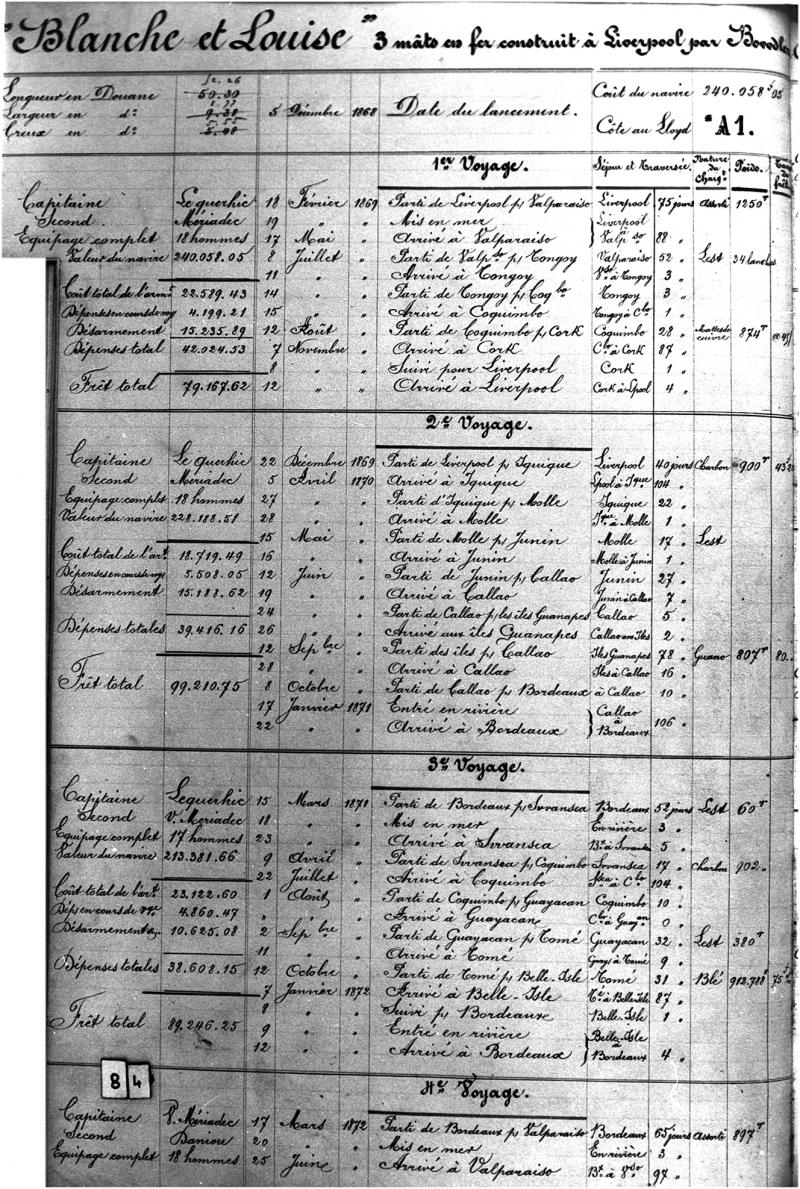 "Blanche et Louise" 3 mâts en fer construit à Liverpool par
52.26
Longueur en Douane 50.30 Coût du navire 240.058f05
Largeur en do 9.38 5 Décembre 1868 Date du lancement.
Creux en do 5.48 Côte au Lloyd *A1.
1er Voyage. Séjour et Traversée. Nature du Charg.t Poids.
Capitaine Le querhic 18 Février 1869 Parti de Liverpool p/ Valparaiso Liverpool 75 jours Assorti 1250T
Second Mériadec 19 " " Mis en mer Liverpool
Equipage complet 18 hommes 17 Mai " Arrivé à Valparaiso à Valpso 88 "
Valeur du navire 240.058.05 8 Juillet " Parti de Valpso p/ Tongoy Valparaiso 52 " Lest 34 lanches
11 " " Arrivé à Tongoy Vso à Tongoy 3 "
Coût total de l'armt 22.589.43 14 " " Parti de Tongoy p/ Coqbo Tongoy 3 "
Dépenses en cours de voy 4.199.21 15 " " Arrivé à Coquimbo Tongoy à Cbo 1 "
Désarmement 15.235.89 12 Août " Parti de Coquimbo p/ Cork Coquimbo 28 " Mattes de cuivre 874T
Dépenses total 42.024.53 7 Novembre " Arrivé à Cork Cbo à Cork 87 "
8 " " Suivi pour Liverpool Cork 1 "
Frêt total 79.167.62 12 " " Arrivé à Liverpool Cork à Lpool 4 "
2e Voyage.
Capitaine Le querhic 22 Décembre 1869 Parti de Liverpool p/ Iquique Liverpool 40 jours Charbon 900T
Second Mériadec 5 Avril 1870 Arrivé à Iquique Lpool à Ique 104 "
Equipage complet 18 hommes 27 " " Parti d'Iquique p/ Molle Iquique 22 "
Valeur du navire 228.188.51 28 " " Arrivé à Molle Ique à Molle 1 "
15 Mai " Parti de Molle p/ Junin Molle 17 " Lest
Coût total de l'art 18.719.49 16 " " Arrivé à Junin Molle à Junin 1 "
Dépenses en cours de voy 5.508.05 12 Juin " Parti de Junin p/ Callao Junin 27 "
Désarmement 15.188.62 19 " " Arrivé à Callao Junin à Callao 7 "
24 " " Parti de Callao p/ les îles Guanapes Callao 5 "
Dépenses totales 39.416.16 26 " " Arrivé aux îles Guanapes Callao aux Iles 2 "
12 Sepbre " Parti des îles p/ Callao Iles Guanapes 78 " Guano 807T 80.
28 " " Arrivé à Callao Iles à Callao 16 "
Frêt total 99.210.75 8 Octobre " Parti de Callao p/ Bordeaux à Callao 10 "
17 Janvier 1871 Entré en rivière Callao
22 " " Arrivé à Bordeaux à Bordeaux 106 "
3e Voyage.
Capitaine Lequerhic 15 Mars 1871 Parti de Bordeaux p/ Swansea Bordeaux 52 jours Lest 60T
Second V. Meriadec 18 " " Mis en mer En rivière 3 "
Equipage complet 17 hommes 23 " " Arrivé à Swansea Bx à Swansea 5 "
Valeur du navire 213.381.66 9 Avril " Parti de Swansea p/ Coquimbo Swansea 17 " Charbon 902.
22 Juillet " Arrivé à Coquimbo à Cbo 104 "
Coût total de l'art 23.122.60 1 Août " Parti de Coquimbo p/ Guayacan Coquimbo 10 "
Déps en cours de Vge 4.860.47 " " " Arrivé à Guayacan Cbo à Guayan 0 "
Désarmement 10.625.08 2 Sepbre " Parti de Guayacan p/ Tomé Guayacan 32 " Lest 380T
11 " " Arrivé à Tomé Guay. à Tomé 9 "
Dépenses totales 38.608.15 12 Octobre " Parti de Tomé p/ Belle-Isle Tomé 31 " Blé 912.788k
7 Janvier 1872 Arrivé à Belle-Isle Té à Belle Isle 87 "
8 " " Suivi p/ Bordeaux Belle-Isle 1 "
Frêt total 89.246.25 9 " " Entré en rivière Belle-Isle
12 " " Arrivé à Bordeaux à Bordeaux 4 "
84
4e Voyage.
Capitaine V. Mériadec 17 Mars 1872 Parti de Bordeaux p/ Valparaiso Bordeaux 65 jours Assorti 897T
Second 20 " " Mis en mer En rivière 3 "
Equipage complet 18 hommes 25 Juine " Arrivé à Valparaiso Bx à Vso 97 "